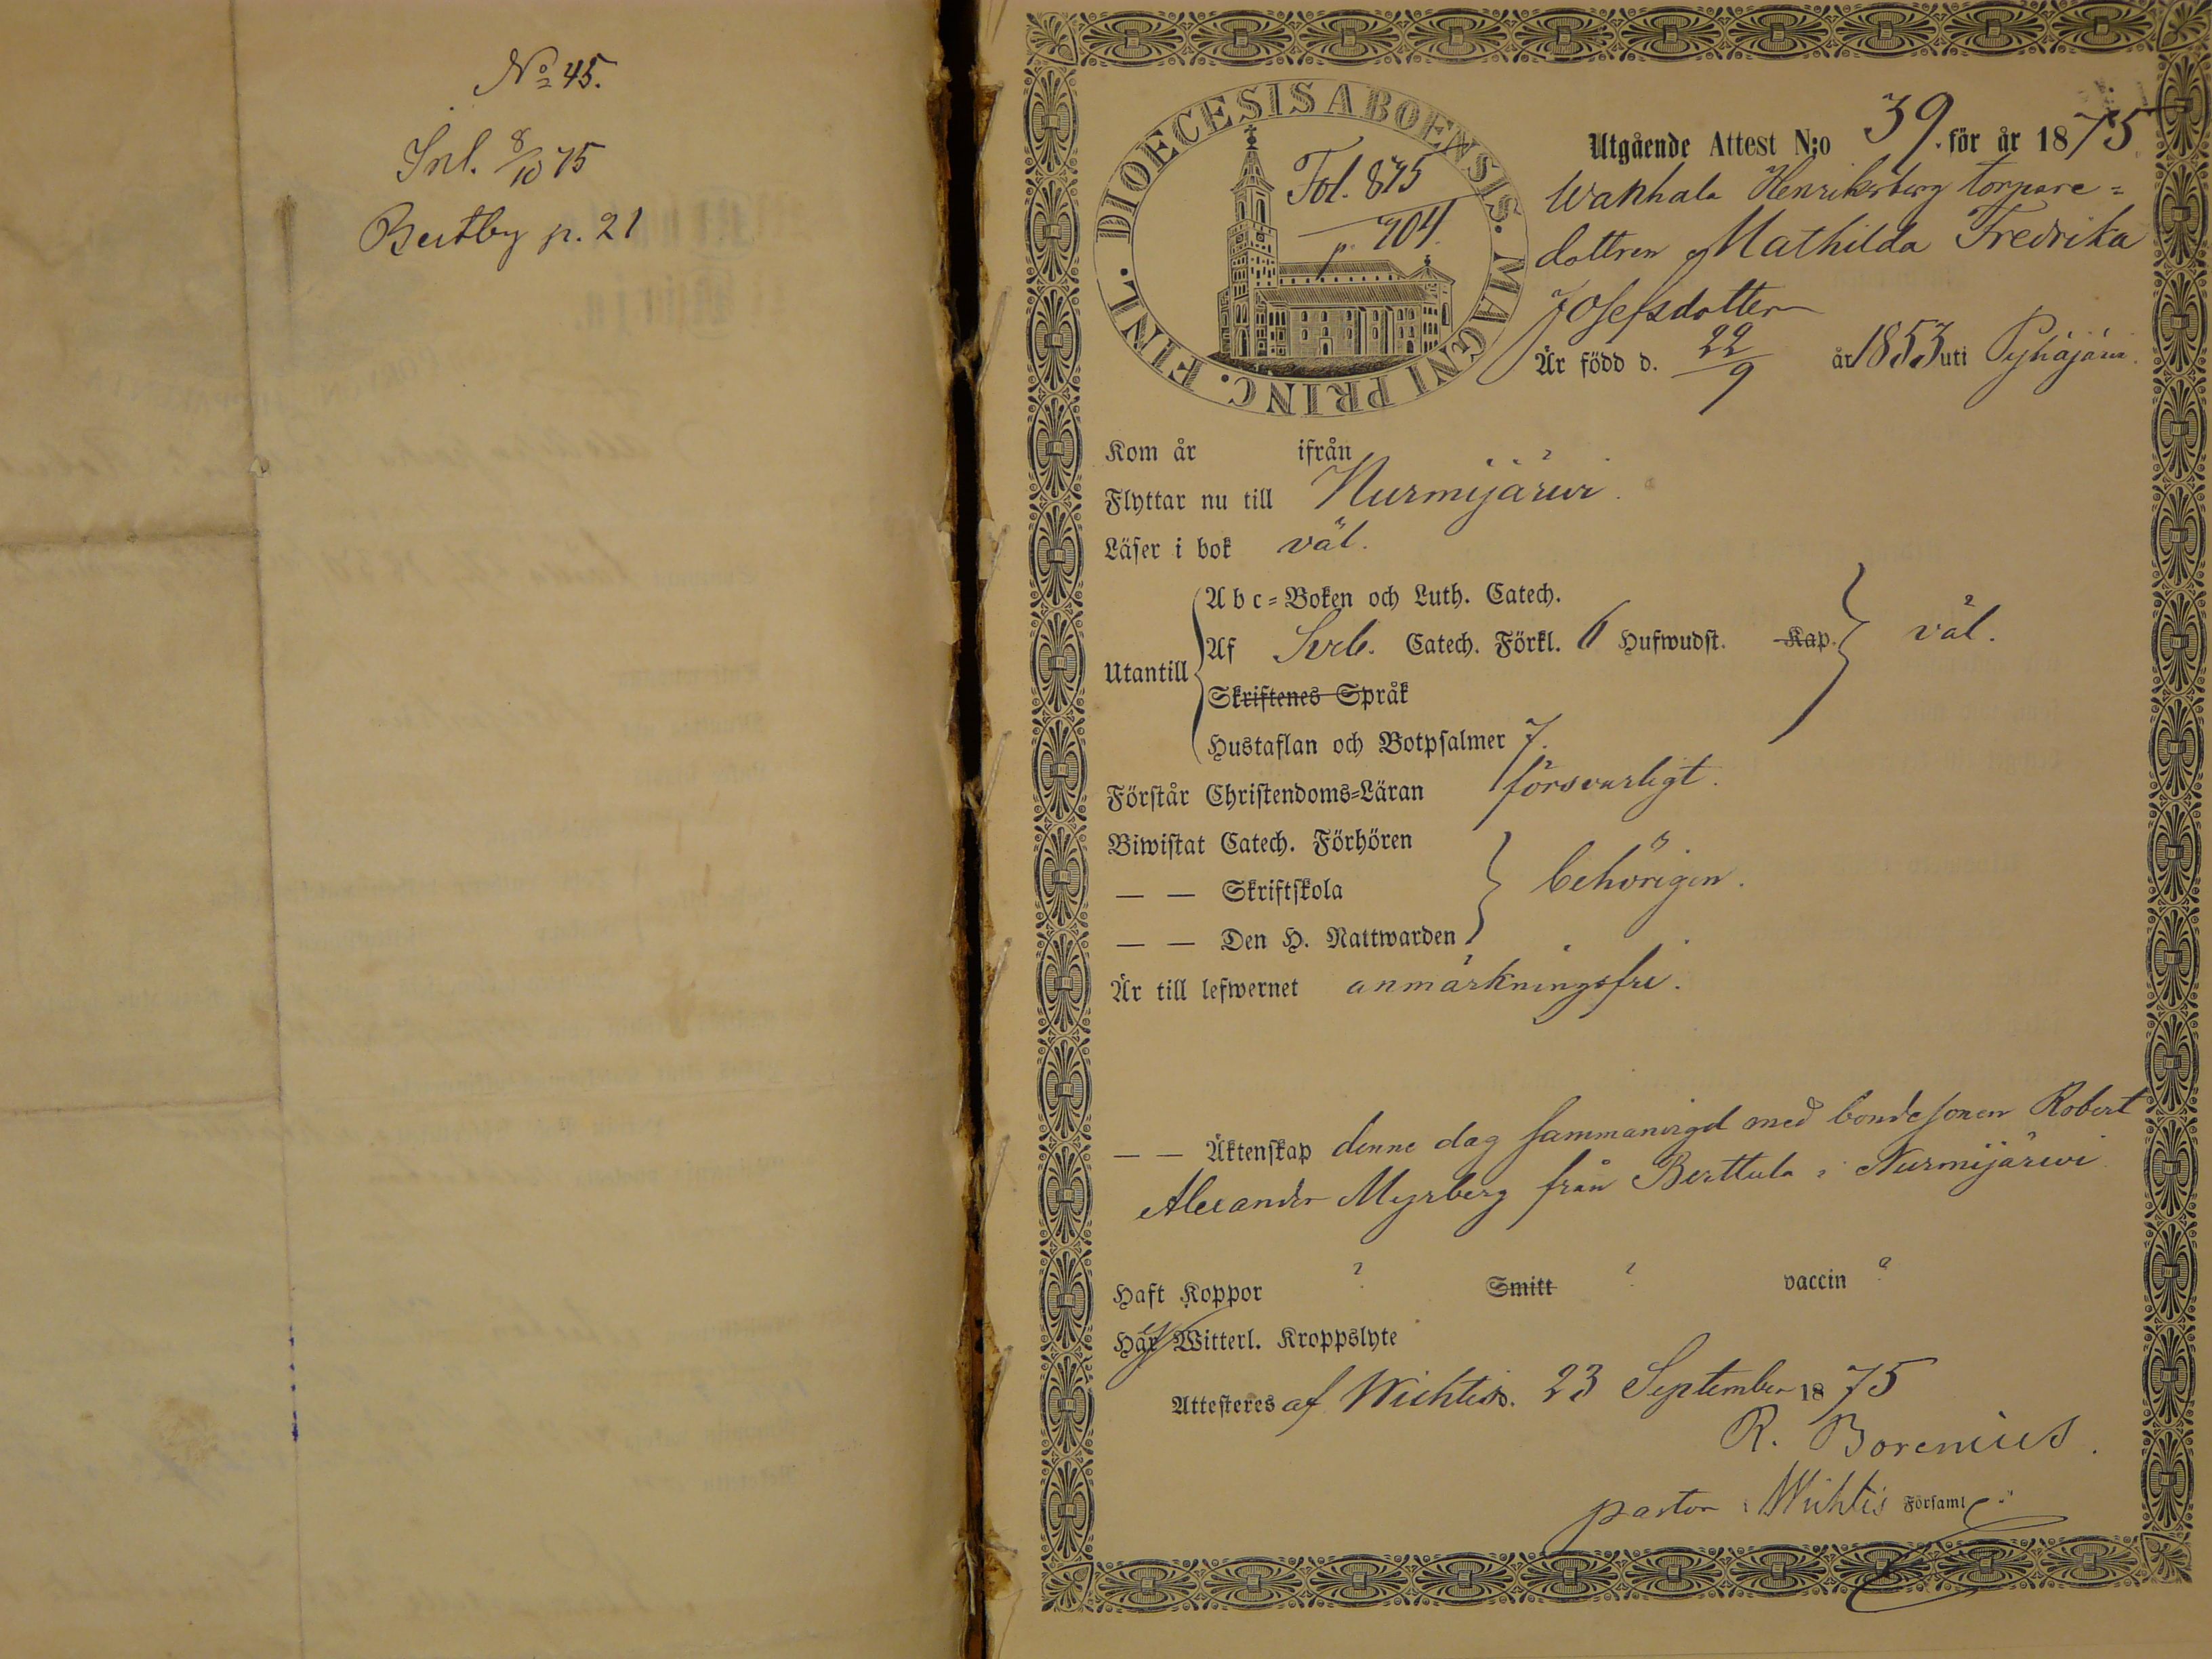 No 45.
Inl. 8/10 75
Bertby p. 21
DIOECESIS ABOENSIS. MAGNI PRINC. FINL.
Fol. 875
p. 904.
Utgående Attest N:o 39. för år 1875
Wanhala Henriksberg torpare=
dottren Mathilda Fredrika
Josefsdotter
Är född d. 22/9 år 1853 uti Pyhäjärvi.
Kom år ifrån
Flyttar nu till Nurmijärwi.
Läser i bok väl.
Abc=Boken och Luth. Catech.
Utantill Af Sveb. Catech. Förkl. 6 Hufwudst. Kap. väl.
Skriftenes Språk
Hustaflan och Botpsalmer 7.
Förstår Christendoms=Läran försvarligt.
Biwistat Catech. Förhören
— — Skriftskola behörigen.
— — Den H. Nattwarden
Är till lefwernet anmärkningsfri.
— — Äktenskap denne dag sammanvigd med bondesonen Robert
Alexander Myrberg från Berttula i Nurmijärwi
Haft Koppor ? Smitt ? vaccin ?
Här Witterl. Kroppslyte
Attesteres af Wichtis d. 23 September 1875
R. Borenius.
pastor i Wichtis Församl.